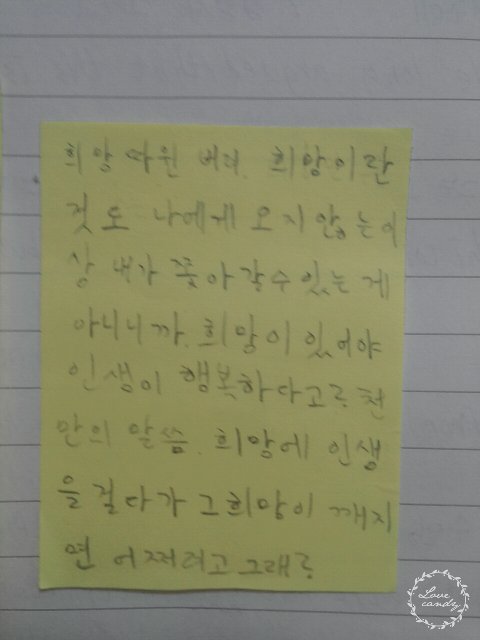 희망 따윈 버려. 희망이란
것도 나에게 오지 않는 이
상 내가 쫓아 갈수 있는 게
아니니까. 희망이 있어야
인생이 행복하다고? 천
만의 말씀. 희망에 인생
을 걸다가 그 희망이 깨지
면 어쩌려고 그래?
Love
candy